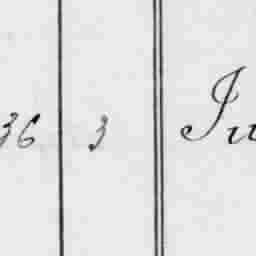 36 3 Ju